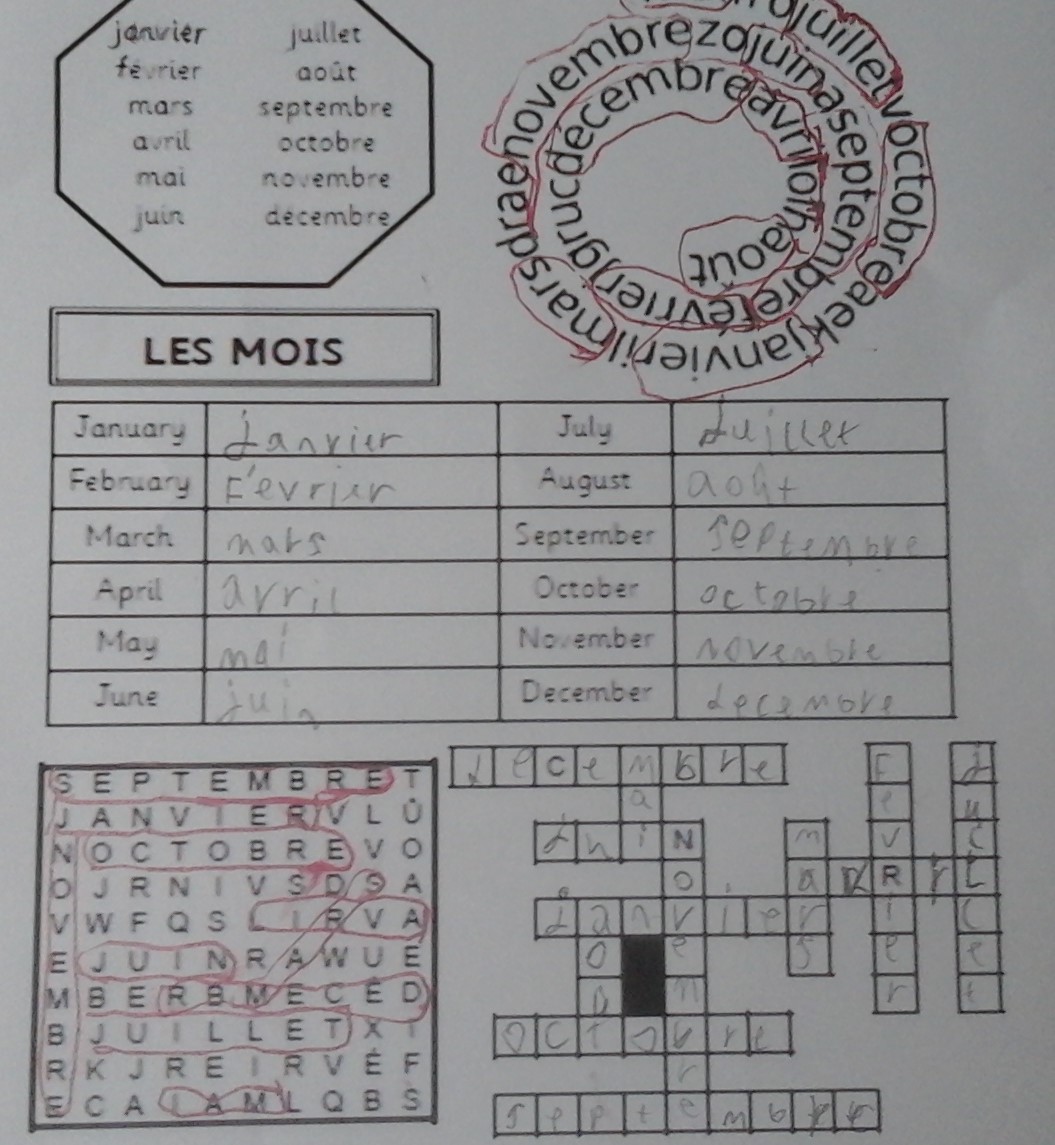 janvier juillet
février août
mars septembre
avril octobre
mai novembre
juin décembre
juilletvoctobreaekjanvierilmarsdraenovembrezojuinaseptembrefévrierjgrucdécembreavrilolhaoût
LES MOIS
January janvier July juillet
February Février August août
March mars September septembre
April avril October octobre
May mai November novembre
June juin December decembre
S E P T E M B R E T
J A N V I E R V L Û
N O C T O B R E V O
O J R N I V S D S A
V W F Q S L I R V A
E J U I N R A W U E
M B E R B M E C É D
B J U I L L E T X I
R K J R E I R V É F
E C A I A M L Q B S
decembre
mai
juin
novembre
mars
fevrier
juillet
avril
janvier
août
octobre
septembre